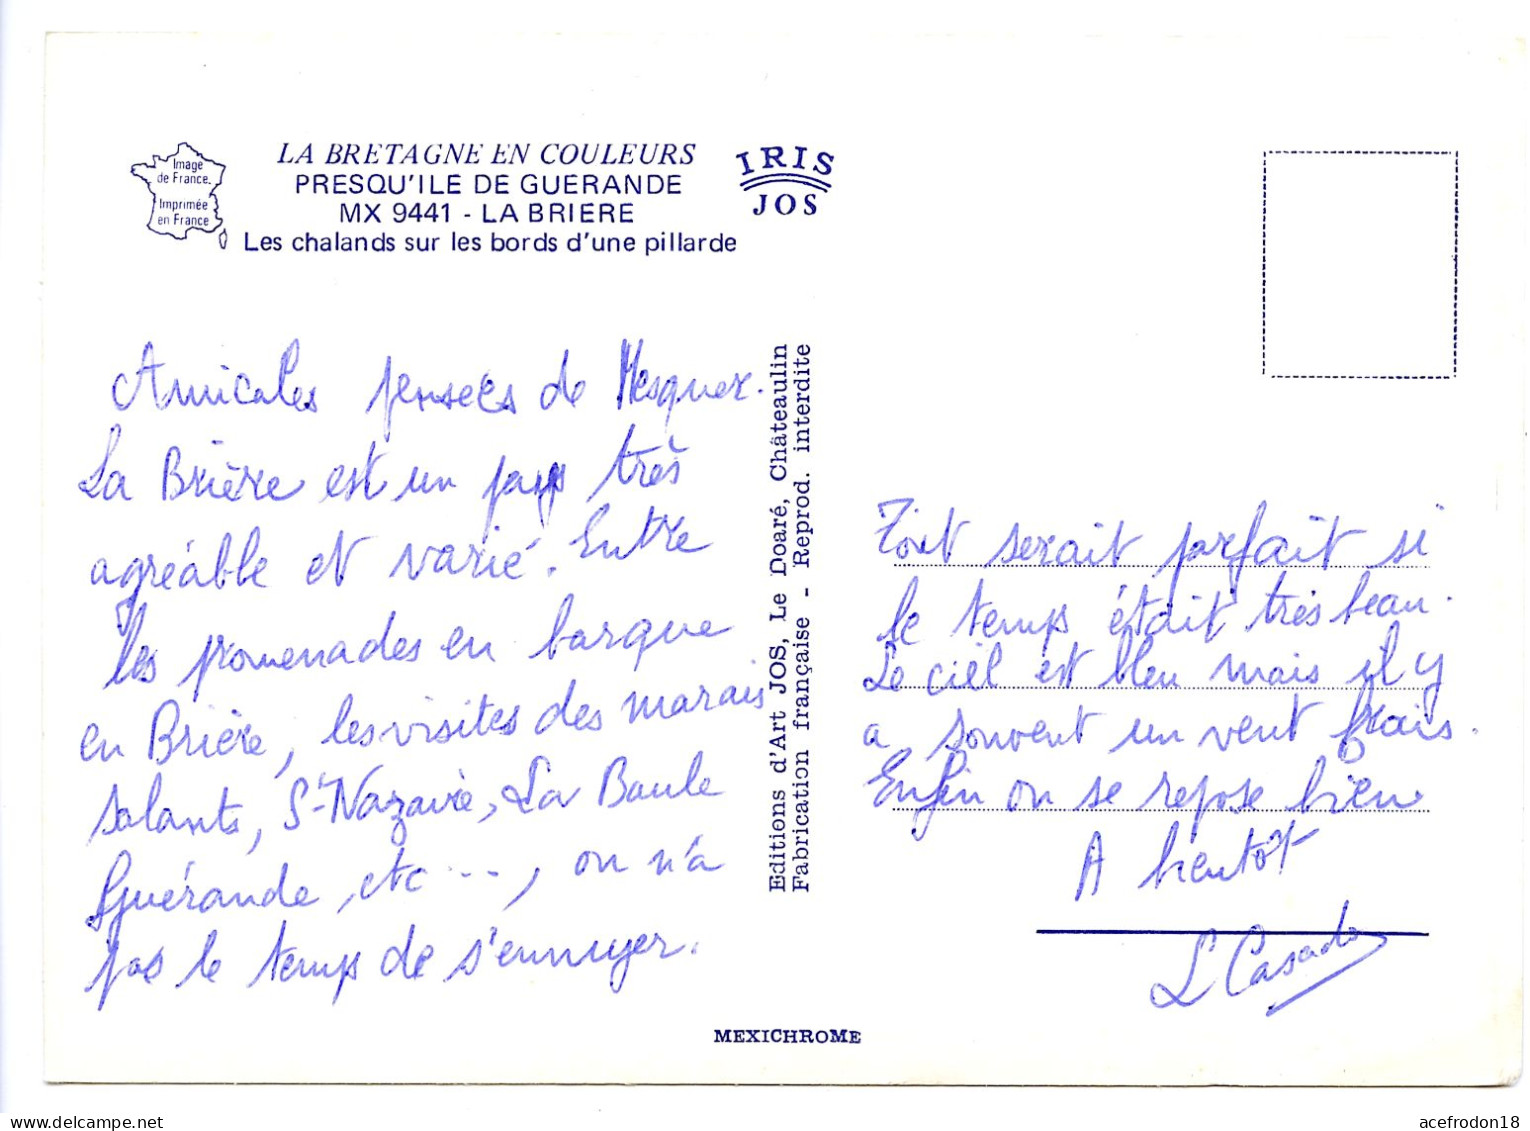 Image
de France.
Imprimée
en France
LA BRETAGNE EN COULEURS
PRESQU'ILE DE GUERANDE
MX 9441 - LA BRIERE
Les chalands sur les bords d'une pillarde
IRIS
JOS
Amicales pensées de Mesquer.
La Brière est un pays très
agréable et varié. Entre
les promenades en barque
en Brière, les visites des marais
salants, St-Nazaire, La Baule
Guérande, etc..., on n'a
pas le temps de s'ennuyer.
Editions d'Art JOS, Le Doaré, Châteaulin
Fabrication française - Reprod. interdite
Tout serait parfait si
le temps était très beau.
Le ciel est bleu mais il y
a souvent un vent frais.
Enfin on se repose bien
A bientôt
L Casado
MEXICHROME
acefrodon18